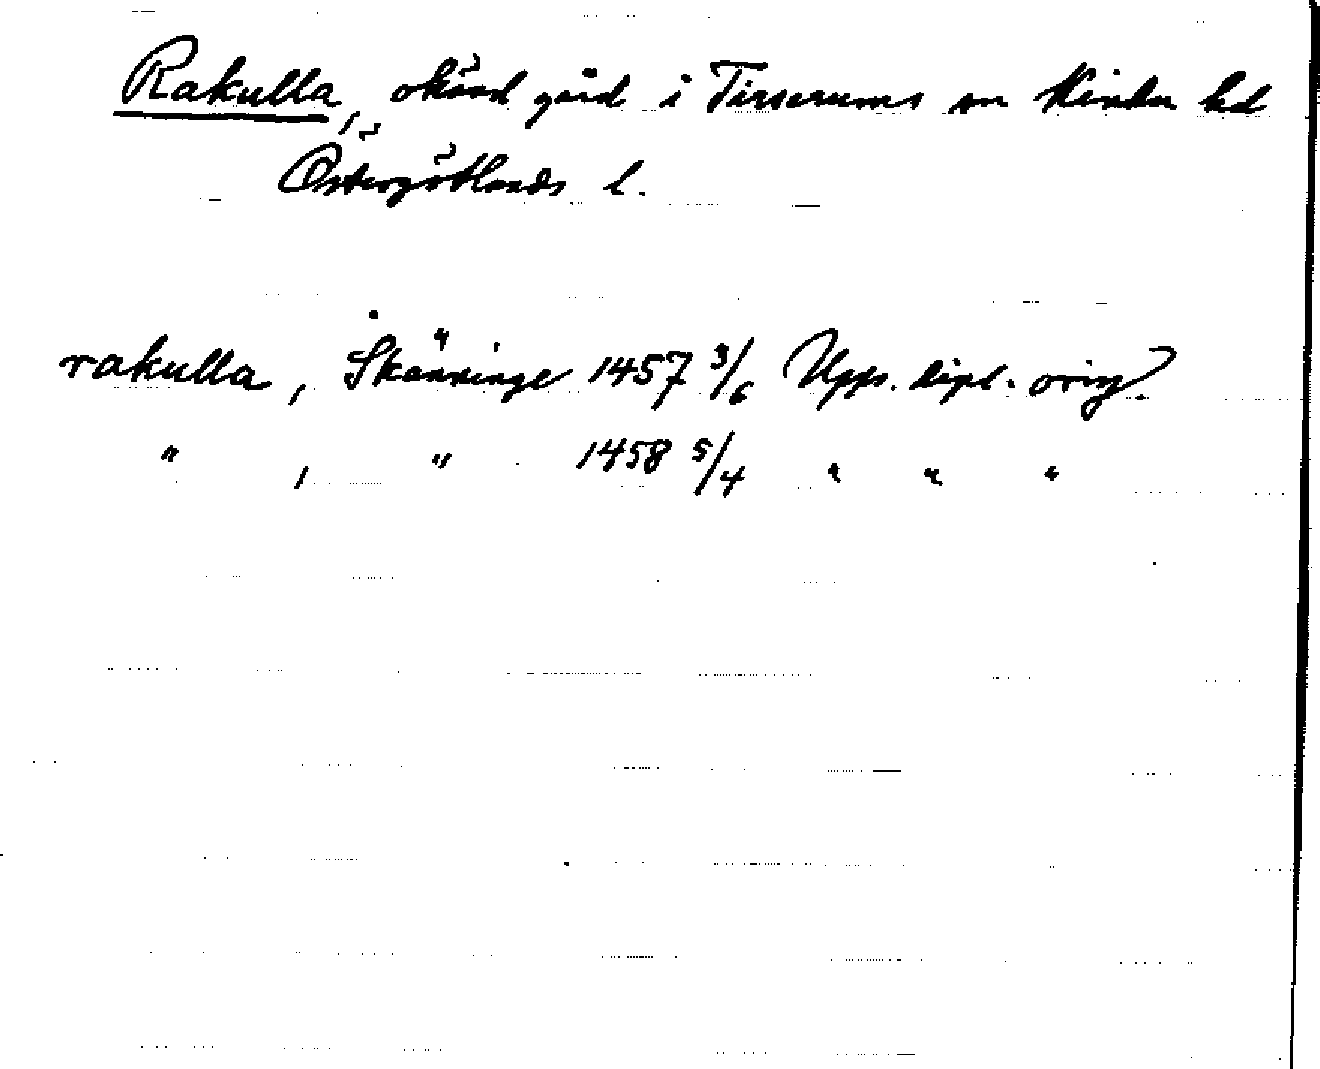 Rakulla, okänd gård i Tirserums sn Kinda hd
Östergötlands l.
rakulla, Skänninge 1457 3/6 Upps. dipl. orig.
" , " 1458 5/4 " " "